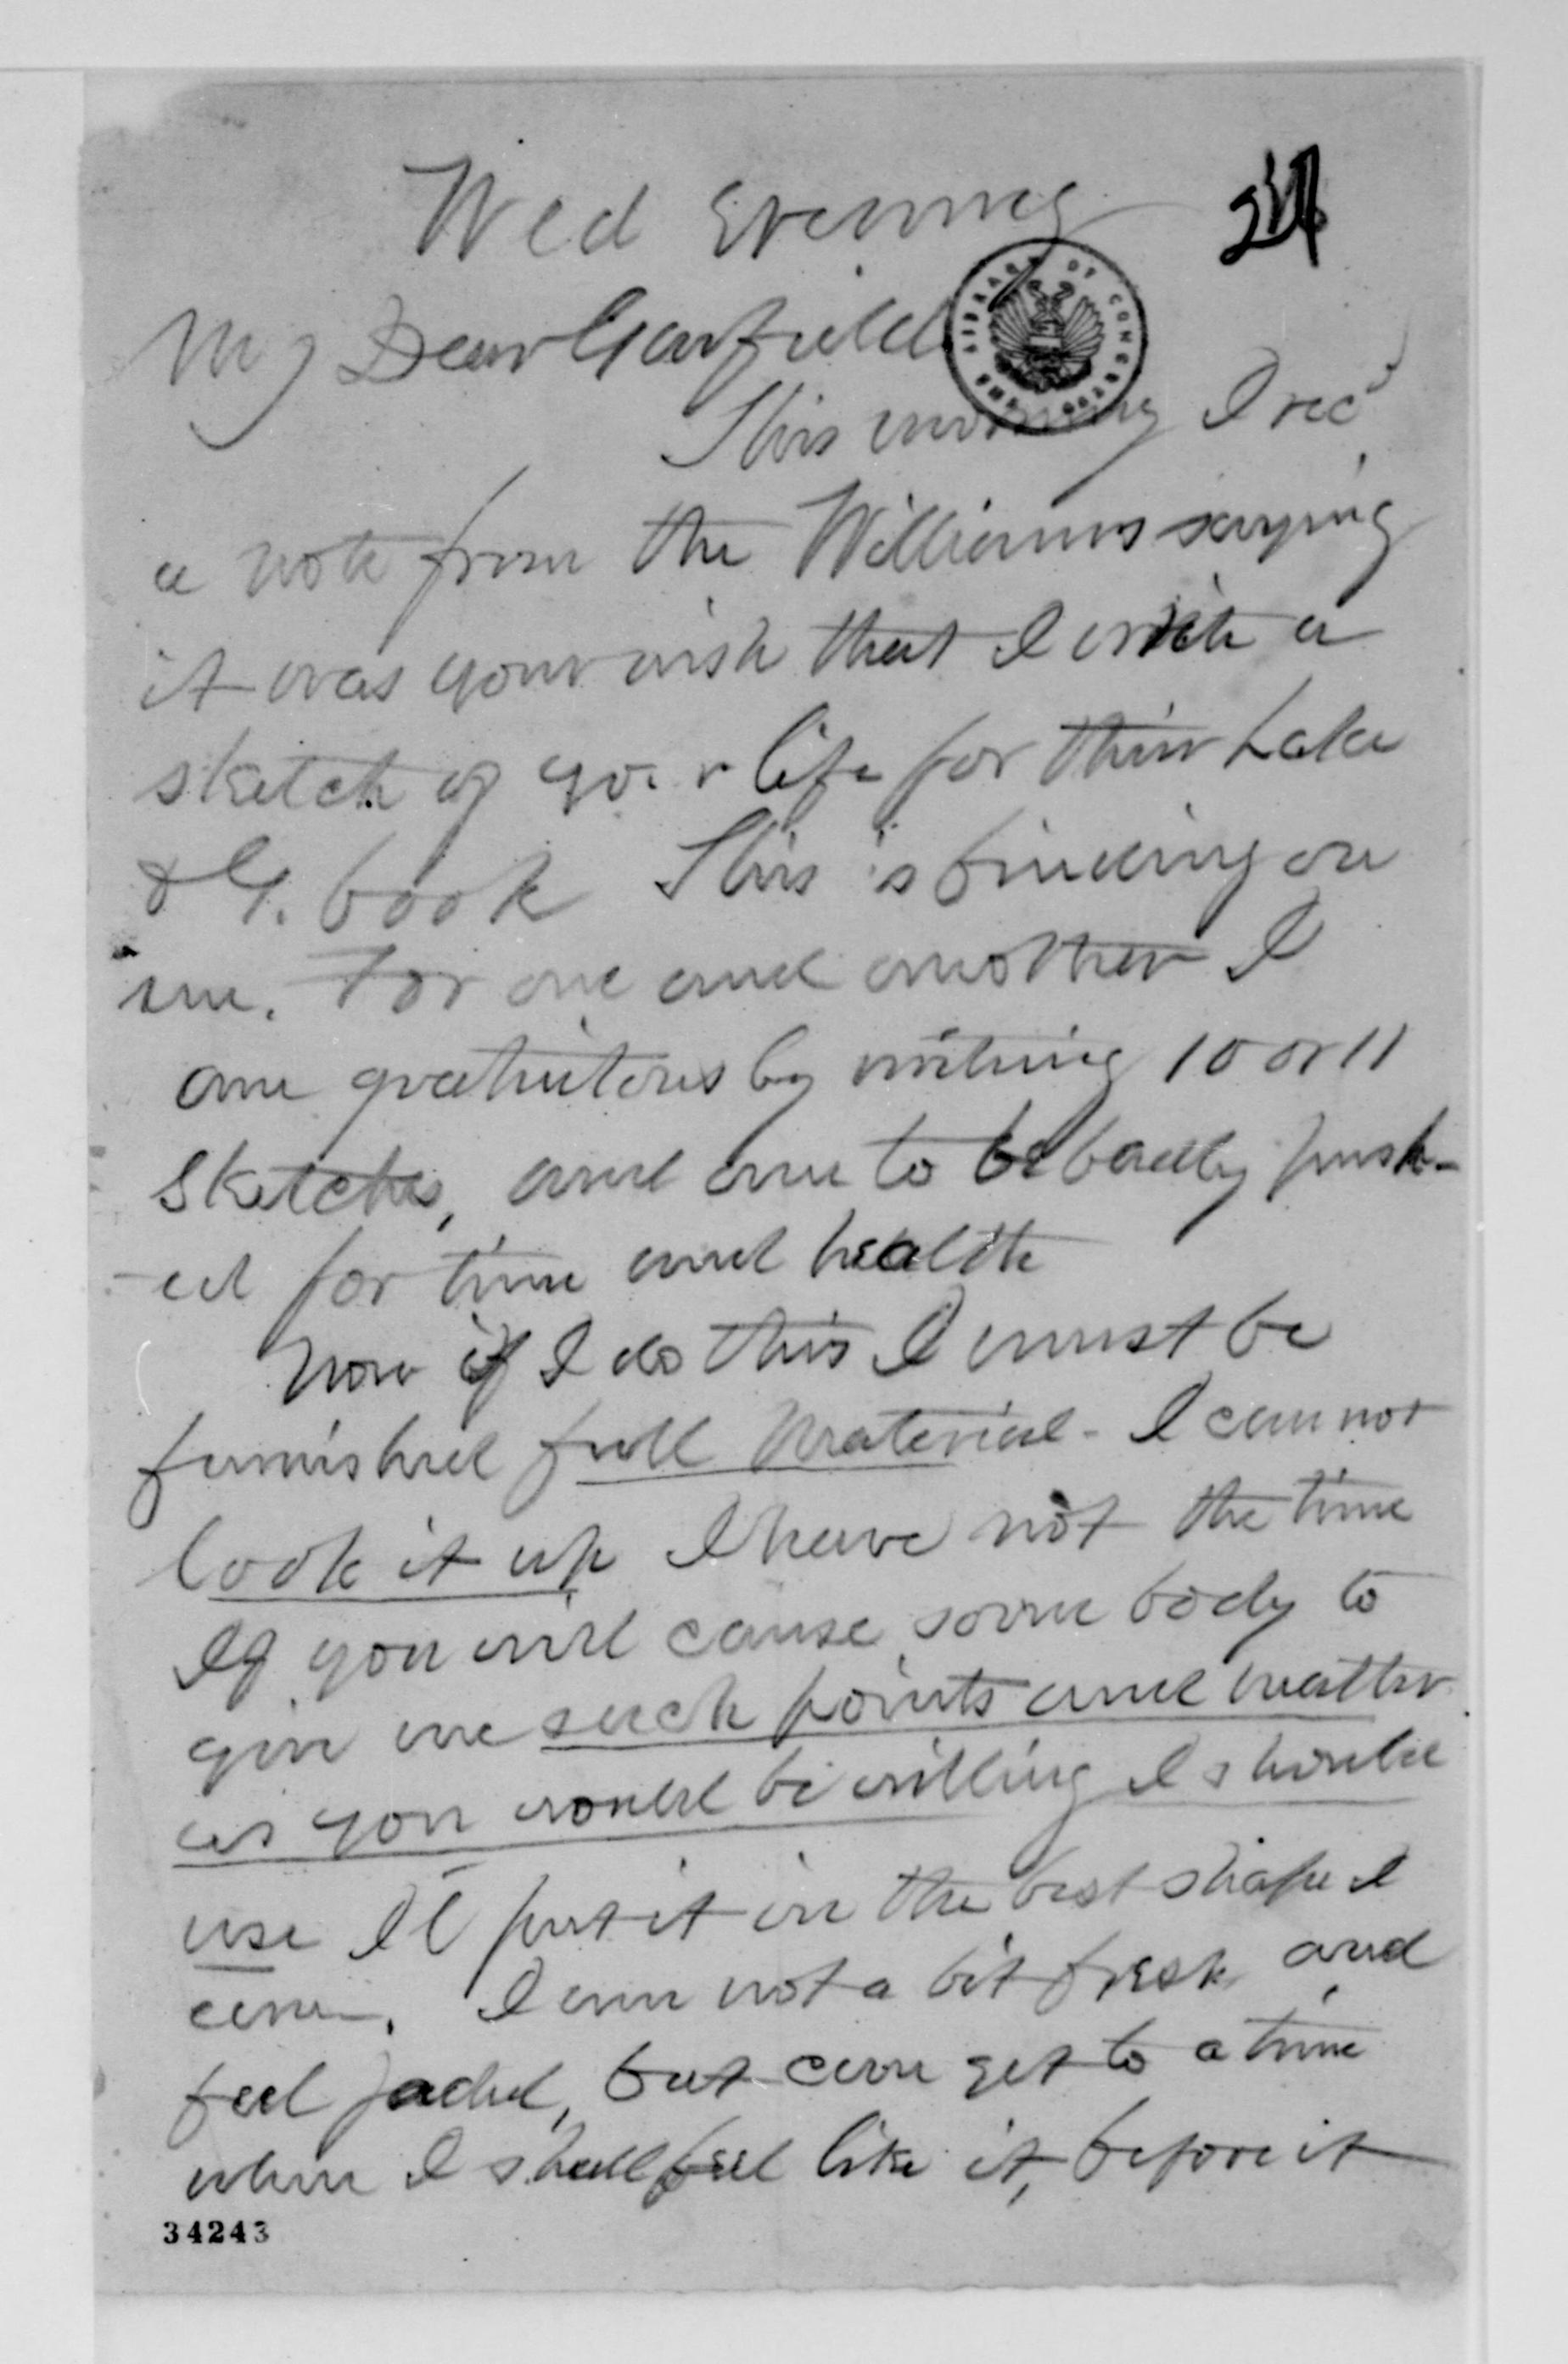 Wed Evening
My Dear Garfield
THE LIBRARY OF CONGRESS
This morning I rec'd
a note from the Williams saying
it was your wish that I write a
sketch of your life for their Lake
& G. book This is binding on
me. For one and another I
am gratuitous by writing 10 or 11
Sketches, and am to be badly push-
-ed for time and health
Now if I do this I must be
furnished full material - I can not
look it up I have not the time
If you will cause some body to
give me such points and matter
as you would be willing I should
use I'l put it in the best shape I
can. I am not a bit fresh and
feel jaded, but can get to a time
when I shall feel like it, before it
34243